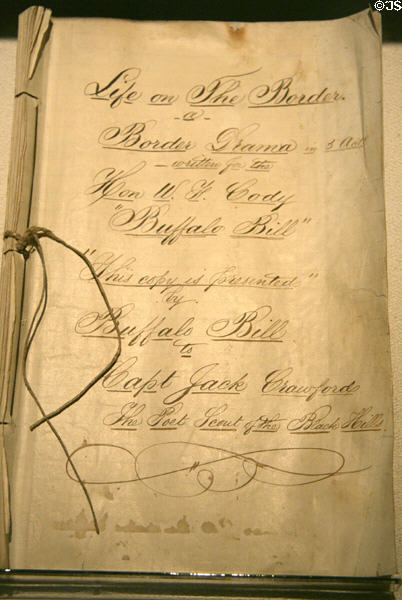 ©CJS
Life on The Border.
- a -
Border Drama in 5 Acts
- written for the
Hon W. F. Cody
"Buffalo Bill"
"This copy is presented"
by.
Buffalo Bill
to
Capt Jack Crawford
The Poet Scout of the Black Hills